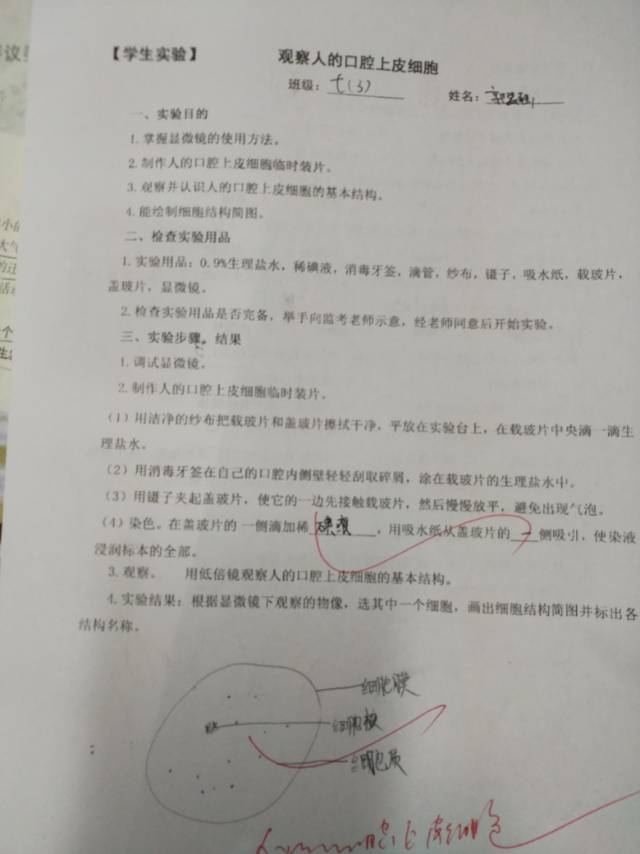 【学生实验】
观察人的口腔上皮细胞
班级：七(3)
姓名：
一、实验目的
1.掌握显微镜的使用方法。
2.制作人的口腔上皮细胞临时装片。
3.观察并认识人的口腔上皮细胞的基本结构。
4.能绘制细胞结构简图。
二、检查实验用品
1.实验用品：0.9%生理盐水，稀碘液，消毒牙签，滴管，纱布，镊子，吸水纸，载玻片，
盖玻片，显微镜。
2.检查实验用品是否完备，举手向监考老师示意，经老师同意后开始实验。
三、实验步骤，结果
1.调试显微镜。
2.制作人的口腔上皮细胞临时装片。
（1）用洁净的纱布把载玻片和盖玻片擦拭干净，平放在实验台上，在载玻片中央滴一滴生
理盐水。
（2）用消毒牙签在自己的口腔内侧壁轻轻刮取碎屑，涂在载玻片的生理盐水中。
（3）用镊子夹起盖玻片，使它的一边先接触载玻片，然后慢慢放平，避免出现气泡。
（4）染色。在盖玻片的一侧滴加稀碘液，用吸水纸从盖玻片的一侧吸引，使染液
浸润标本的全部。
3.观察。 用低倍镜观察人的口腔上皮细胞的基本结构。
4.实验结果：根据显微镜下观察的物像，选其中一个细胞，画出细胞结构简图并标出各
结构名称。
细胞膜
细胞核
细胞质